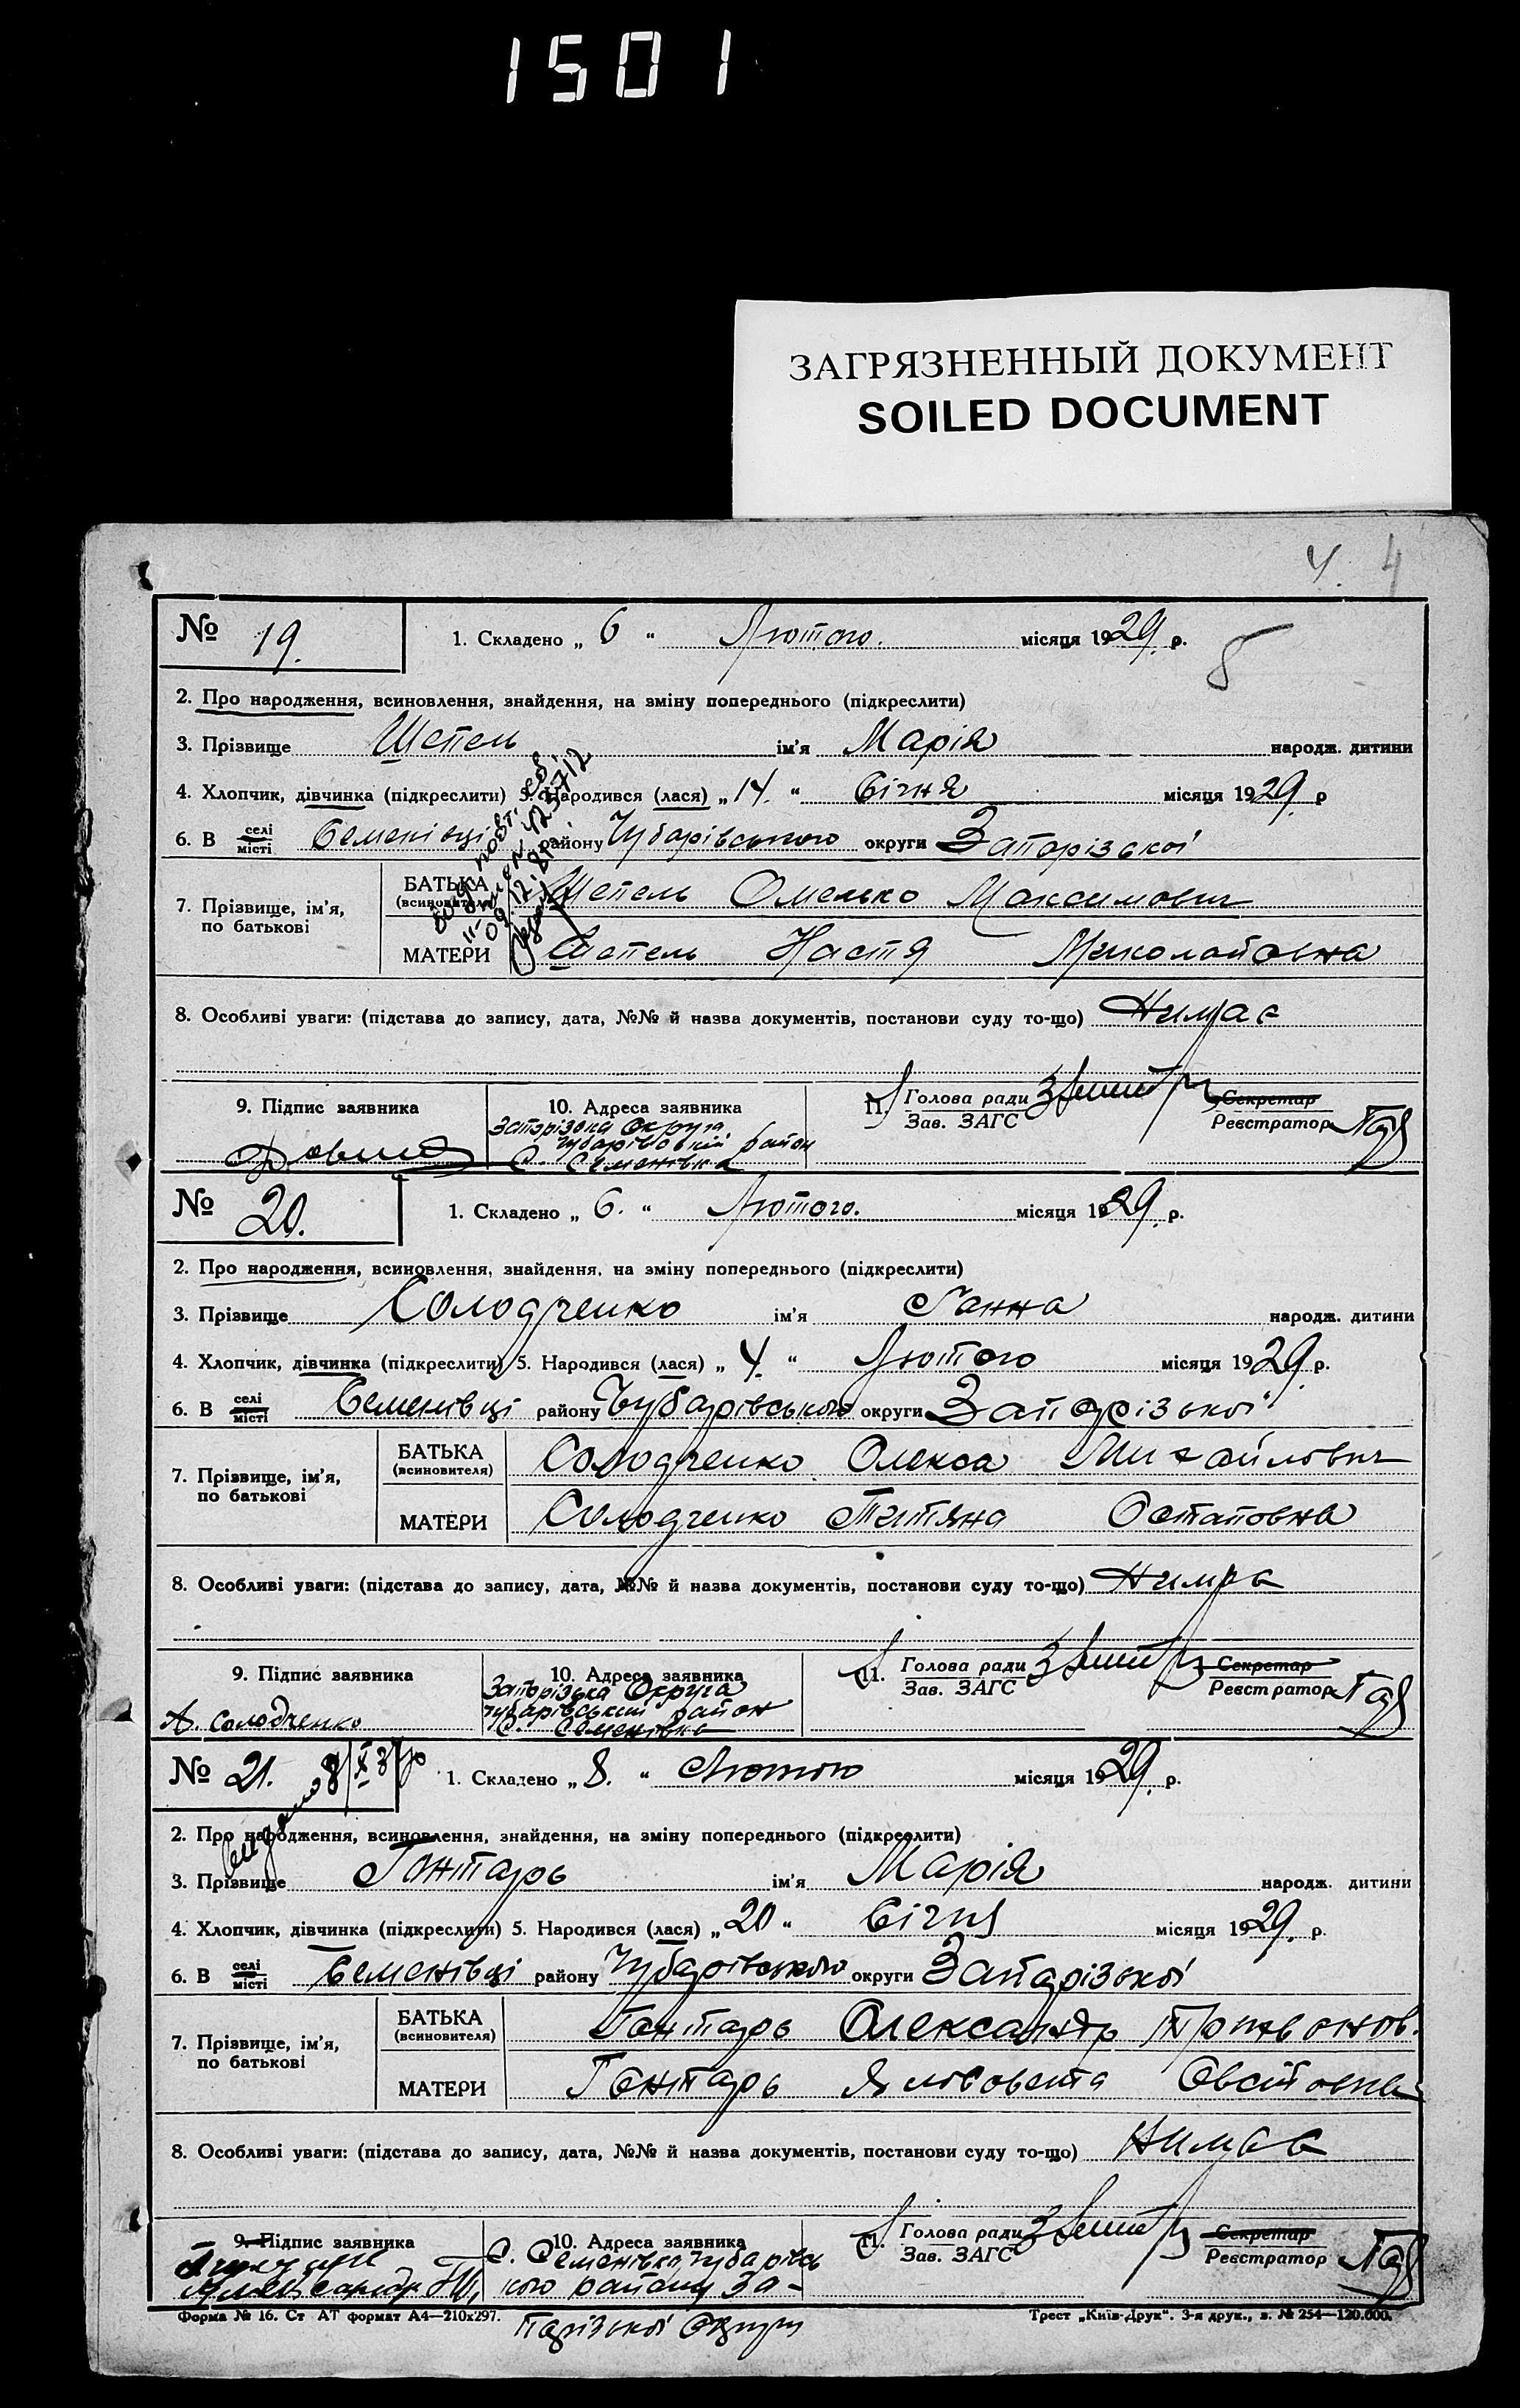 1501
ЗАГРЯЗНЕННЫЙ ДОКУМЕНТ
SOILED DOCUMENT
4. 4
№ 19. 1. Складено „ 6 “ Лютого. місяця 1929. р.
2. Про народження, всиновлення, знайдення, на зміну попереднього (підкреслити)
3. Прізвище Шепель ім'я Марія народж. дитини
4. Хлопчик, дівчинка (підкреслити) 5. Народився (лася) „ 14. “ Січня місяця 1929. р
6. В селі місті Семенівці району Чубарівського округи Запорізької
7. Прізвище, ім'я, по батькові
БАТЬКА (всиновителя) Шепель Омелько Максимович
МАТЕРИ Шепель Настя Миколаповна
8. Особливі уваги: (підстава до запису, дата, №№ й назва документів, постанови суду то-що) Нимає
9. Підпис заявника 10. Адреса заявника 11. Голова ради Секретар
Зав. ЗАГС Реєстратор
Запорізька Округа
Чубарівський район
С. Семенівка
№ 20. 1. Складено „ 6. “ Лютого. місяця 1929. р.
2. Про народження, всиновлення, знайдення, на зміну попереднього (підкреслити)
3. Прізвище Солодченко ім'я Ганна народж. дитини
4. Хлопчик, дівчинка (підкреслити) 5. Народився (лася) „ 4. “ Лютого місяця 1929. р.
6. В селі місті Семенівці району Чубарівського округи Запорізької
7. Прізвище, ім'я, по батькові
БАТЬКА (всиновителя) Солодченко Олекса Михайлович
МАТЕРИ Солодченко Титяна Остаповна
8. Особливі уваги: (підстава до запису, дата, №№ й назва документів, постанови суду то-що) Нимає
9. Підпис заявника 10. Адреса заявника 11. Голова ради Секретар
Зав. ЗАГС Реєстратор
Запорізька Округа
Чубарівський район
С. Семенівка
А. Солодченко
№ 21. 1. Складено „ 8. “ Лютого місяця 1929. р.
2. Про народження, всиновлення, знайдення, на зміну попереднього (підкреслити)
3. Прізвище Гонтарь ім'я Марія народж. дитини
4. Хлопчик, дівчинка (підкреслити) 5. Народився (лася) „ 20 “ Січня місяця 1929. р.
6. В селі місті Семенівці району Чубарівського округи Запорізької
7. Прізвище, ім'я, по батькові
БАТЬКА (всиновителя) Гонтарь Олександр
МАТЕРИ Гонтарь
8. Особливі уваги: (підстава до запису, дата, №№ й назва документів, постанови суду то-що) Нимає
9. Підпис заявника 10. Адреса заявника 11. Голова ради Секретар
Зав. ЗАГС Реєстратор
С. Семенівка Чубарівсь
кого району За-
порізької Округи
Форма № 16. Ст АТ формат А4—210х297. Трест „Київ-Друк“. 3-я друк., з. № 254—120.000.